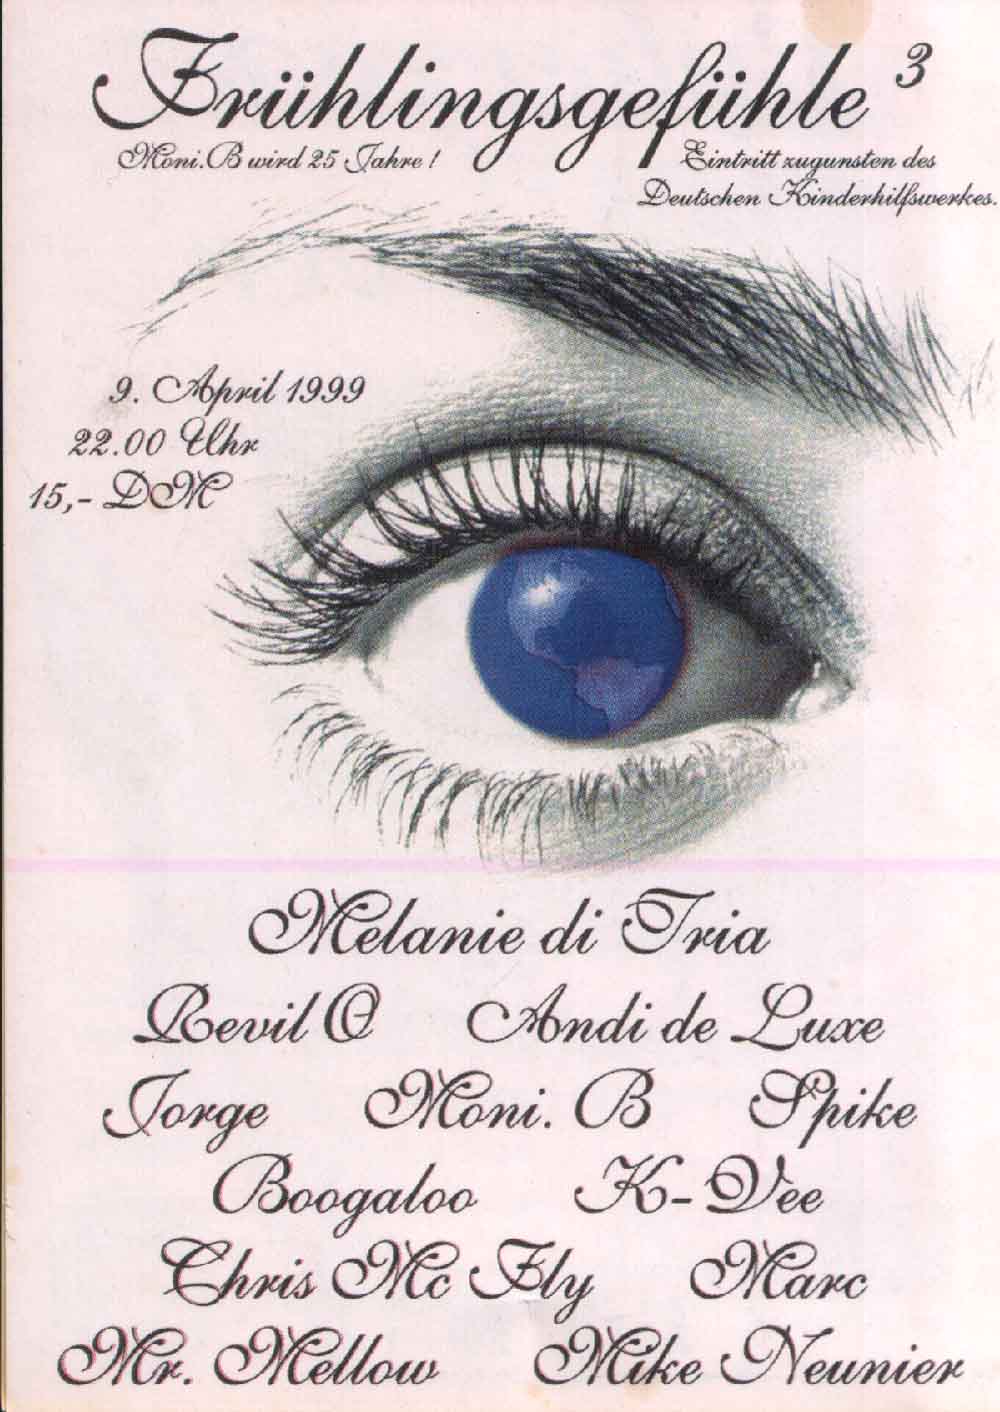 Frühlingsgefühle ³
Moni.B wird 25 Jahre !
Eintritt zugunsten des
Deutschen Kinderhilfswerkes.
9. April 1999
22.00 Uhr
15,- DM
Melanie di Tria
Revil O Andi de Luxe
Jorge Moni. B Spike
Boogaloo K-Vee
Chris Mc Fly Marc
Mr. Mellow Mike Neunier